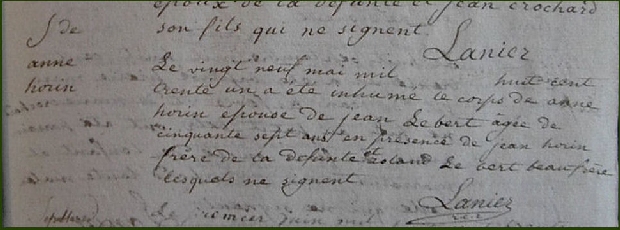 époux de la défunte et jean crochard
son fils qui ne signent.
Lanier
S de
anne
horin
Le vingt neuf mai mil huit cent
trente un a été inhumé le corps de anne
horin épouse de jean Le bert agée de
cinquante sept ans en présence de jean horin
frère de la defunte et Le bert beaufrère
lesquels ne signent
Lanier
remier juin mil